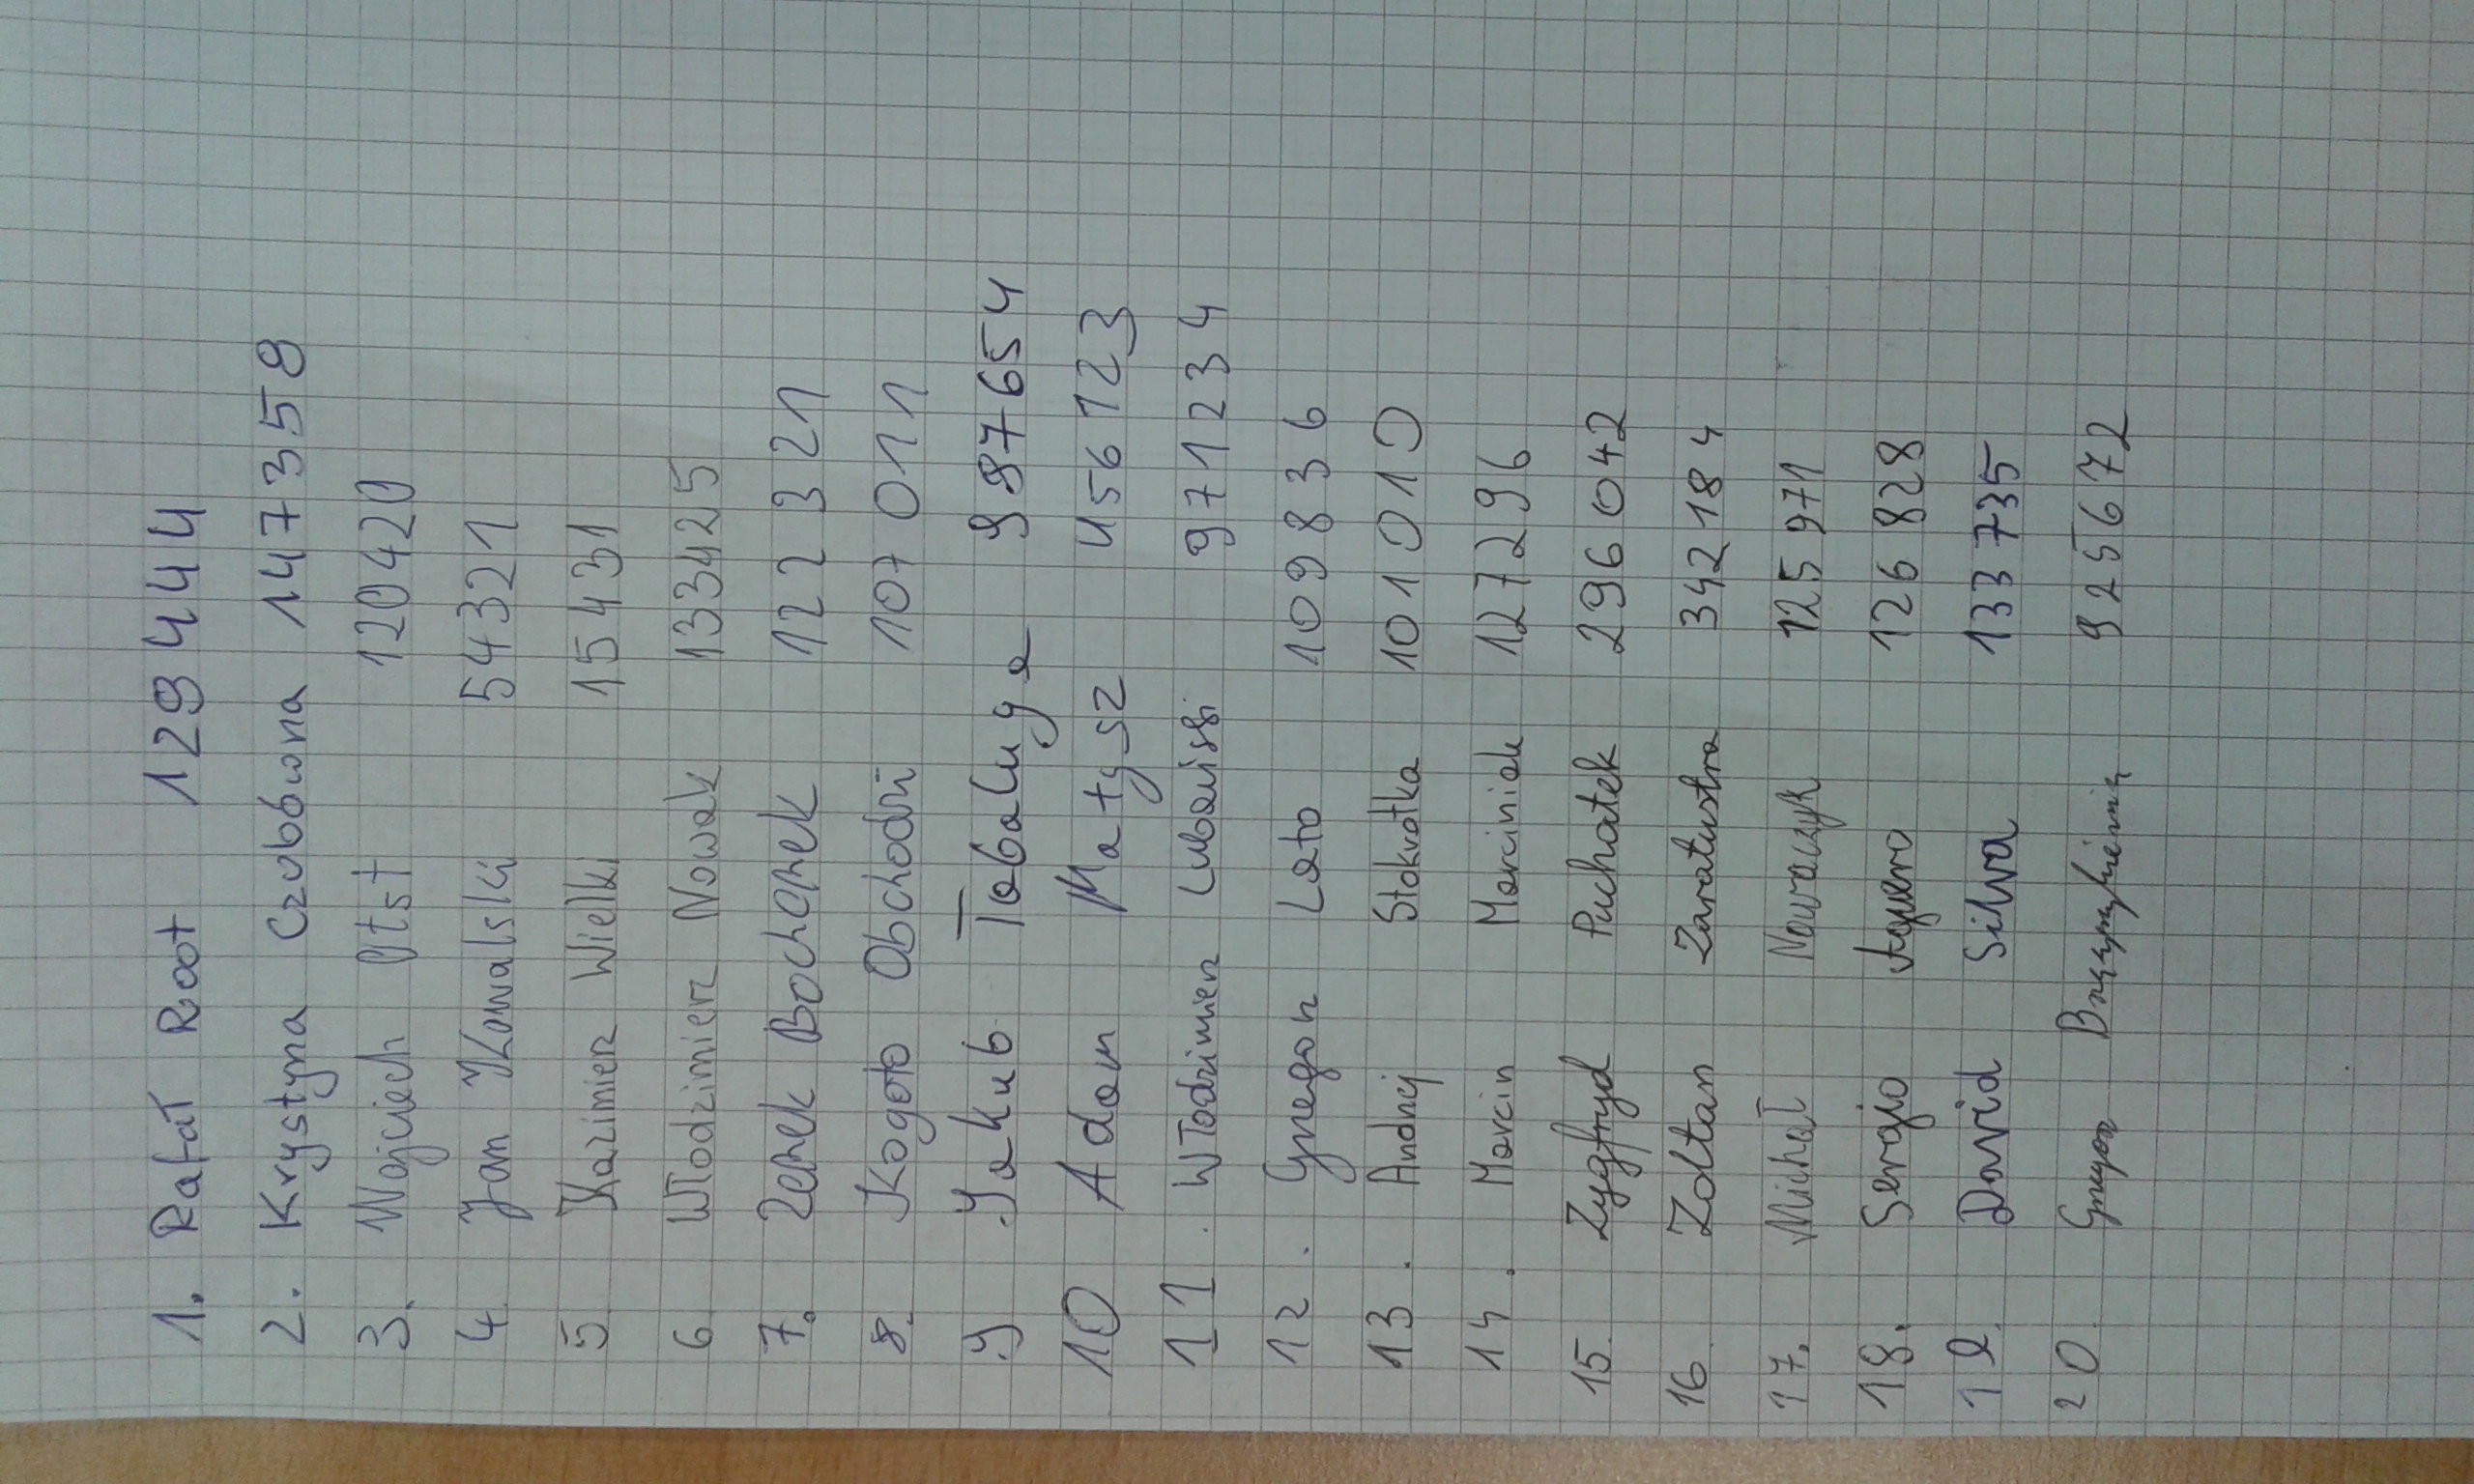 1. Rafał Root 129444
2. Krystyna Czubówna 147358
3. Wojciech Otst 120420
4 Jan Kowalski 54321
5 Kazimierz Wielki 15431
6 Włodzimierz Nowak 133425
7. Zenek Bochenek 122321
8. Kogoto Obchodzi 107011
9 Jakub Tabaluga 987654
10 Adam Małysz 456123
11. Włodzimierz 971234
12. Grzegorz Lato 109836
13. Andrzej Stokrotka 101010
14. Marcin Marciniak 127296
15. Zygfryd Puchatek 296042
16 Zoltan Zaratustra 342184
17. Michał Nowaczyk 125971
18. Sergio Aguero 126828
19 David Silva 133735
20 Grzegorz 925672